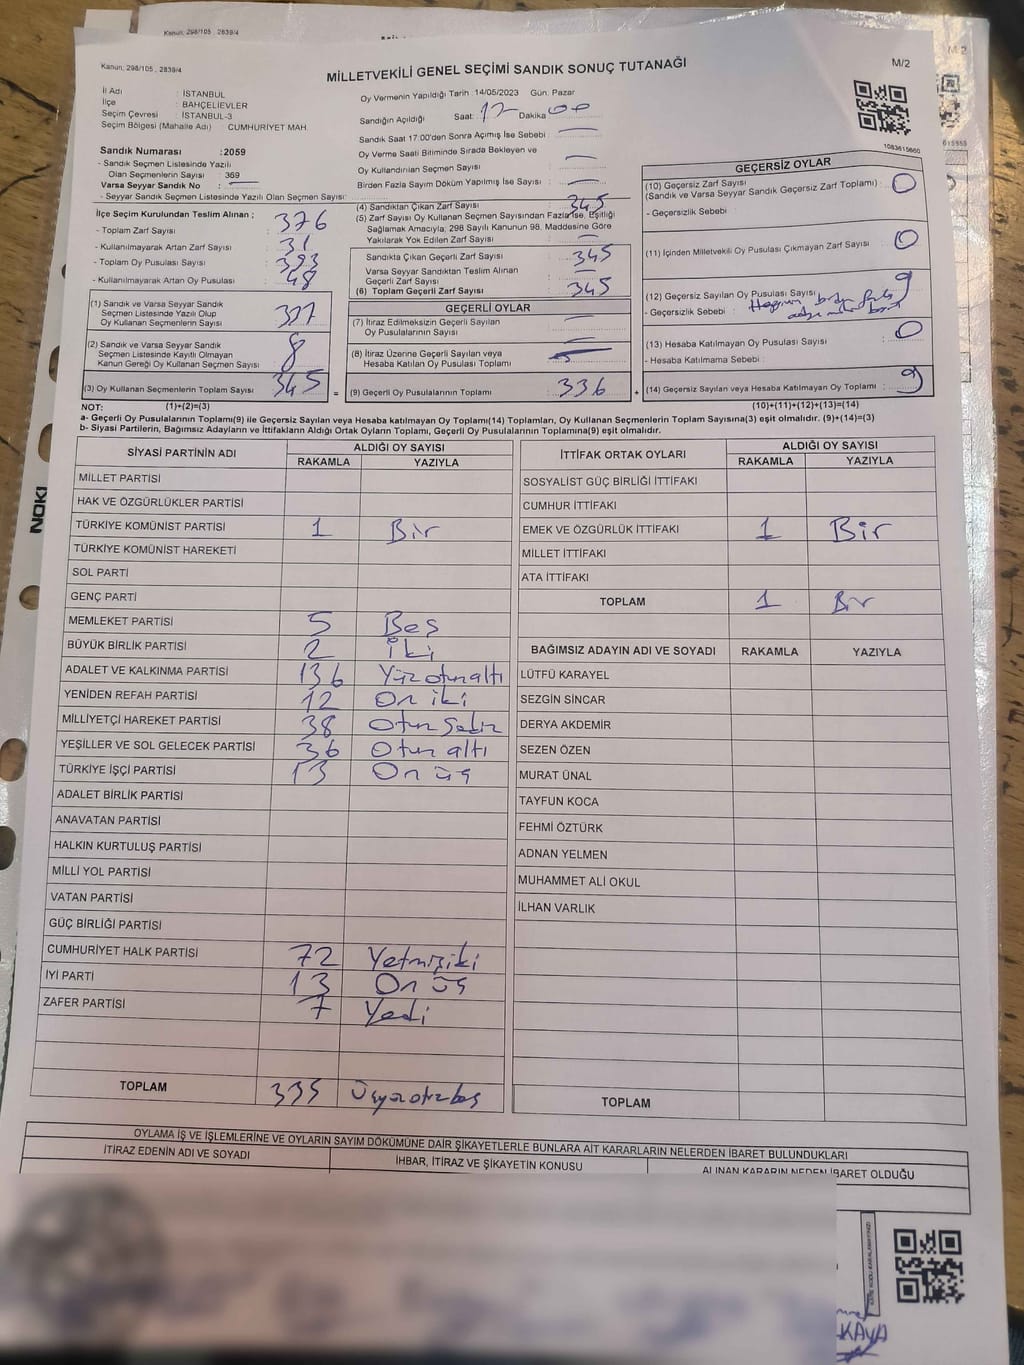 Kanun; 298/105 , 2839/4
Kanun; 298/105 , 2839/4
M/2
MİLLETVEKİLİ GENEL SEÇİMİ SANDIK SONUÇ TUTANAĞI
İl Adı : İSTANBUL
İlçe : BAHÇELİEVLER
Seçim Çevresi : İSTANBUL-3
Seçim Bölgesi (Mahalle Adı) CUMHURİYET MAH.
Sandık Numarası :2059
- Sandık Seçmen Listesinde Yazılı
Olan Seçmenlerin Sayısı : 369
Varsa Seyyar Sandık No :
- Seyyar Sandık Seçmen Listesinde Yazılı Olan Seçmen Sayısı:
Oy Vermenin Yapıldığı Tarih : 14/05/2023 Gün. Pazar
Sandığın Açıldığı Saat: 17 Dakika 00
Sandık Saat 17:00'den Sonra Açımış İse Sebebi :
Oy Verme Saati Bitiminde Sırada Bekleyen ve
Oy Kullandırılan Seçmen Sayısı :
Birden Fazla Sayım Döküm Yapılmış İse Sayısı :
1083615660
İlçe Seçim Kurulundan Teslim Alınan ;
- Toplam Zarf Sayısı : 376
- Kullanılmayarak Artan Zarf Sayısı : 31
- Toplam Oy Pusulası Sayısı : 393
- Kullanılmayarak Artan Oy Pusulası : 48
(1) Sandık ve Varsa Seyyar Sandık
Seçmen Listesinde Yazılı Olup
Oy Kullanan Seçmenlerin Sayısı : 337
(2) Sandık ve Varsa Seyyar Sandık
Seçmen Listesinde Kayıtlı Olmayan
Kanun Gereği Oy Kullanan Seçmen Sayısı : 8
(3) Oy Kullanan Seçmenlerin Toplam Sayısı : 345
(4) Sandıktan Çıkan Zarf Sayısı : 345
(5) Zarf Sayısı Oy Kullanan Seçmen Sayısından Fazla İse, Eşitliği
Sağlamak Amacıyla; 298 Sayılı Kanunun 98. Maddesine Göre
Yakılarak Yok Edilen Zarf Sayısı :
Sandıkta Çıkan Geçerli Zarf Sayısı : 345
Varsa Seyyar Sandıktan Teslim Alınan
Geçerli Zarf Sayısı :
(6) Toplam Geçerli Zarf Sayısı : 345
GEÇERLİ OYLAR
(7) İtiraz Edilmeksizin Geçerli Sayılan
Oy Pusulalarının Sayısı :
(8) İtiraz Üzerine Geçerli Sayılan veya
Hesaba Katılan Oy Pusulası Toplamı :
= (9) Geçerli Oy Pusulalarının Toplamı : 336 +
GEÇERSİZ OYLAR
(10) Geçersiz Zarf Sayısı
(Sandık ve Varsa Seyyar Sandık Geçersiz Zarf Toplamı) : 0
- Geçersizlik Sebebi :
(11) İçinden Milletvekili Oy Pusulası Çıkmayan Zarf Sayısı : 0
(12) Geçersiz Sayılan Oy Pusulası Sayısı : 9
- Geçersizlik Sebebi :
(13) Hesaba Katılmayan Oy Pusulası Sayısı : 0
- Hesaba Katılmama Sebebi :
(14) Geçersiz Sayılan veya Hesaba Katılmayan Oy Toplamı : 9
NOT: (1)+(2)=(3)
(10)+(11)+(12)+(13)=(14)
a- Geçerli Oy Pusulalarının Toplamı(9) ile Geçersiz Sayılan veya Hesaba katılmayan Oy Toplamı(14) Toplamları, Oy Kullanan Seçmenlerin Toplam Sayısına(3) eşit olmalıdır. (9)+(14)=(3)
b- Siyasi Partilerin, Bağımsız Adayların ve İttifakların Aldığı Ortak Oyların Toplamı, Geçerli Oy Pusulalarının Toplamına(9) eşit olmalıdır.
SİYASİ PARTİNİN ADI ALDIĞI OY SAYISI
RAKAMLA YAZIYLA
MİLLET PARTİSİ
HAK VE ÖZGÜRLÜKLER PARTİSİ
TÜRKİYE KOMÜNİST PARTİSİ 1 Bir
TÜRKİYE KOMÜNİST HAREKETİ
SOL PARTİ
GENÇ PARTİ
MEMLEKET PARTİSİ 5 Beş
BÜYÜK BİRLİK PARTİSİ 2 İki
ADALET VE KALKINMA PARTİSİ 136 Yüz otuz altı
YENİDEN REFAH PARTİSİ 12 On iki
MİLLİYETÇİ HAREKET PARTİSİ 38 Otuz Sekiz
YEŞİLLER VE SOL GELECEK PARTİSİ 36 Otuz altı
TÜRKİYE İŞÇİ PARTİSİ 13 On üç
ADALET BİRLİK PARTİSİ
ANAVATAN PARTİSİ
HALKIN KURTULUŞ PARTİSİ
MİLLİ YOL PARTİSİ
VATAN PARTİSİ
GÜÇ BİRLİĞİ PARTİSİ
CUMHURİYET HALK PARTİSİ 72 Yetmişiki
İYİ PARTİ 13 On üç
ZAFER PARTİSİ 7 Yedi
TOPLAM 335 Üçyüzotuzbeş
İTTİFAK ORTAK OYLARI ALDIĞI OY SAYISI
RAKAMLA YAZIYLA
SOSYALİST GÜÇ BİRLİĞİ İTTİFAKI
CUMHUR İTTİFAKI
EMEK VE ÖZGÜRLÜK İTTİFAKI 1 Bir
MİLLET İTTİFAKI
ATA İTTİFAKI
TOPLAM 1 Bir
BAĞIMSIZ ADAYIN ADI VE SOYADI RAKAMLA YAZIYLA
LÜTFÜ KARAYEL
SEZGİN SİNCAR
DERYA AKDEMİR
SEZEN ÖZEN
MURAT ÜNAL
TAYFUN KOCA
FEHMİ ÖZTÜRK
ADNAN YELMEN
MUHAMMET ALİ OKUL
İLHAN VARLIK
TOPLAM
OYLAMA İŞ VE İŞLEMLERİNE VE OYLARIN SAYIM DÖKÜMÜNE DAİR ŞİKAYETLERLE BUNLARA AİT KARARLARIN NELERDEN İBARET BULUNDUKLARI
İTİRAZ EDENİN ADI VE SOYADI İHBAR, İTİRAZ VE ŞİKAYETİN KONUSU ALINAN KARARIN NEDEN İBARET OLDUĞU
KAYA
NOKI